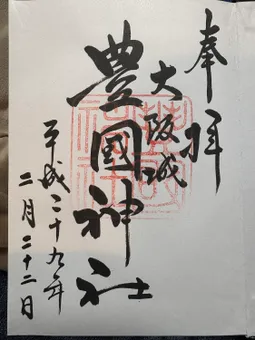 奉拝
大阪城
豊國神社
平成二十九年
二月二十二日